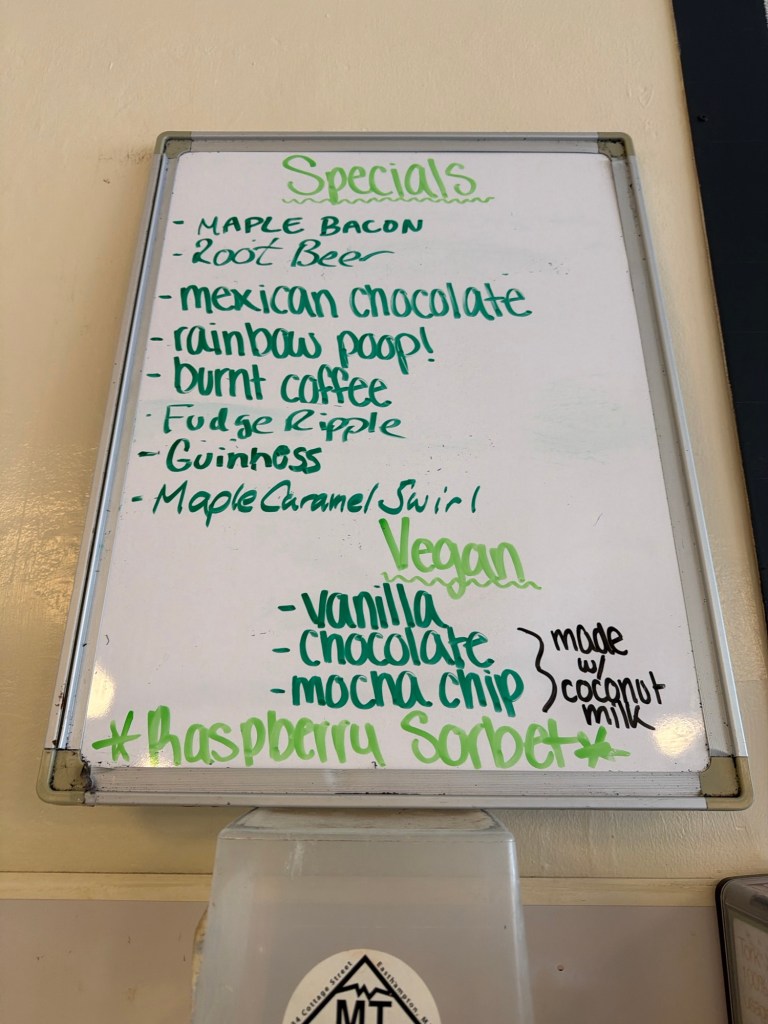 Specials
- MAPLE BACON
- Root Beer
- mexican chocolate
- rainbow poop!
- burnt coffee
- Fudge Ripple
- Guinness
- Maple Caramel Swirl
Vegan
- vanilla
- chocolate
- mocha chip
made
w/
coconut
milk
*Raspberry Sorbet*
Cottage Street
Easthampton, M
MT